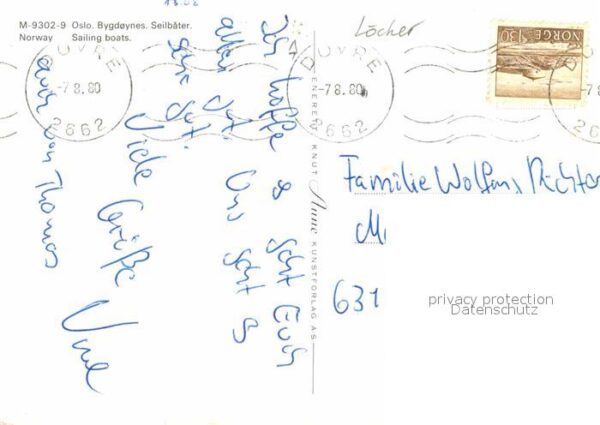 M-9302-9 Oslo. Bygdøynes. Seilbåter.
Norway Sailing boats.
Ich hoffe es geht Euch
allen gut. Uns geht es
sehr gut.
Viele Grüße Uwe
auch von Thomas
ENERETT KNUT Aune KUNSTFORLAG AS
Löcher
NORGE 130
-7 8. 80
2662
-7 8. 80
2662
Familie Wolfgang Richter
M
631
privacy protection
Datenschutz